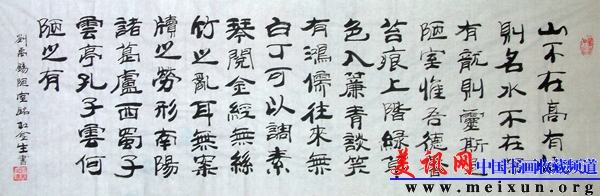 山不在高有
則名水不在
有龍則靈斯是
陋室惟吾德馨
苔痕上階綠草
色入簾青談笑
有鴻儒往來無
白丁可以調素
琴閱金經無絲
竹之亂耳無案
牘之勞形南陽
諸葛廬西蜀子
雲亭孔子雲何
陋之有
劉禹錫陋室銘
美讯网
中国书画收藏频道
www.meixun.org